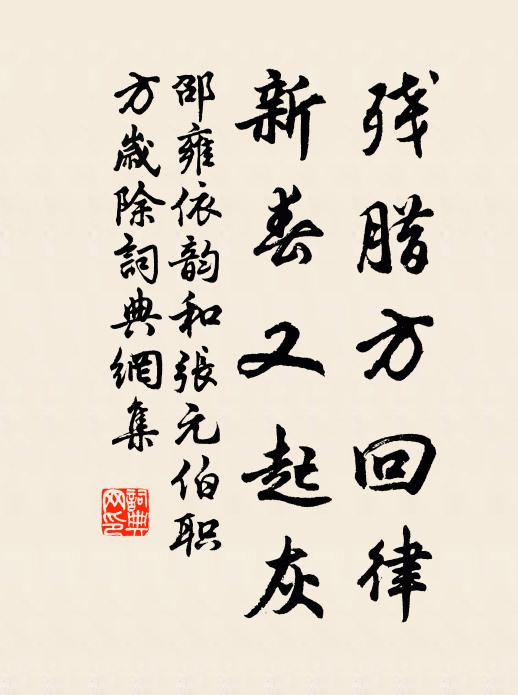 残腊方回律
新春又起灰
邵雍依韵和张元伯职
方歳除詞典網集
詞典
网印